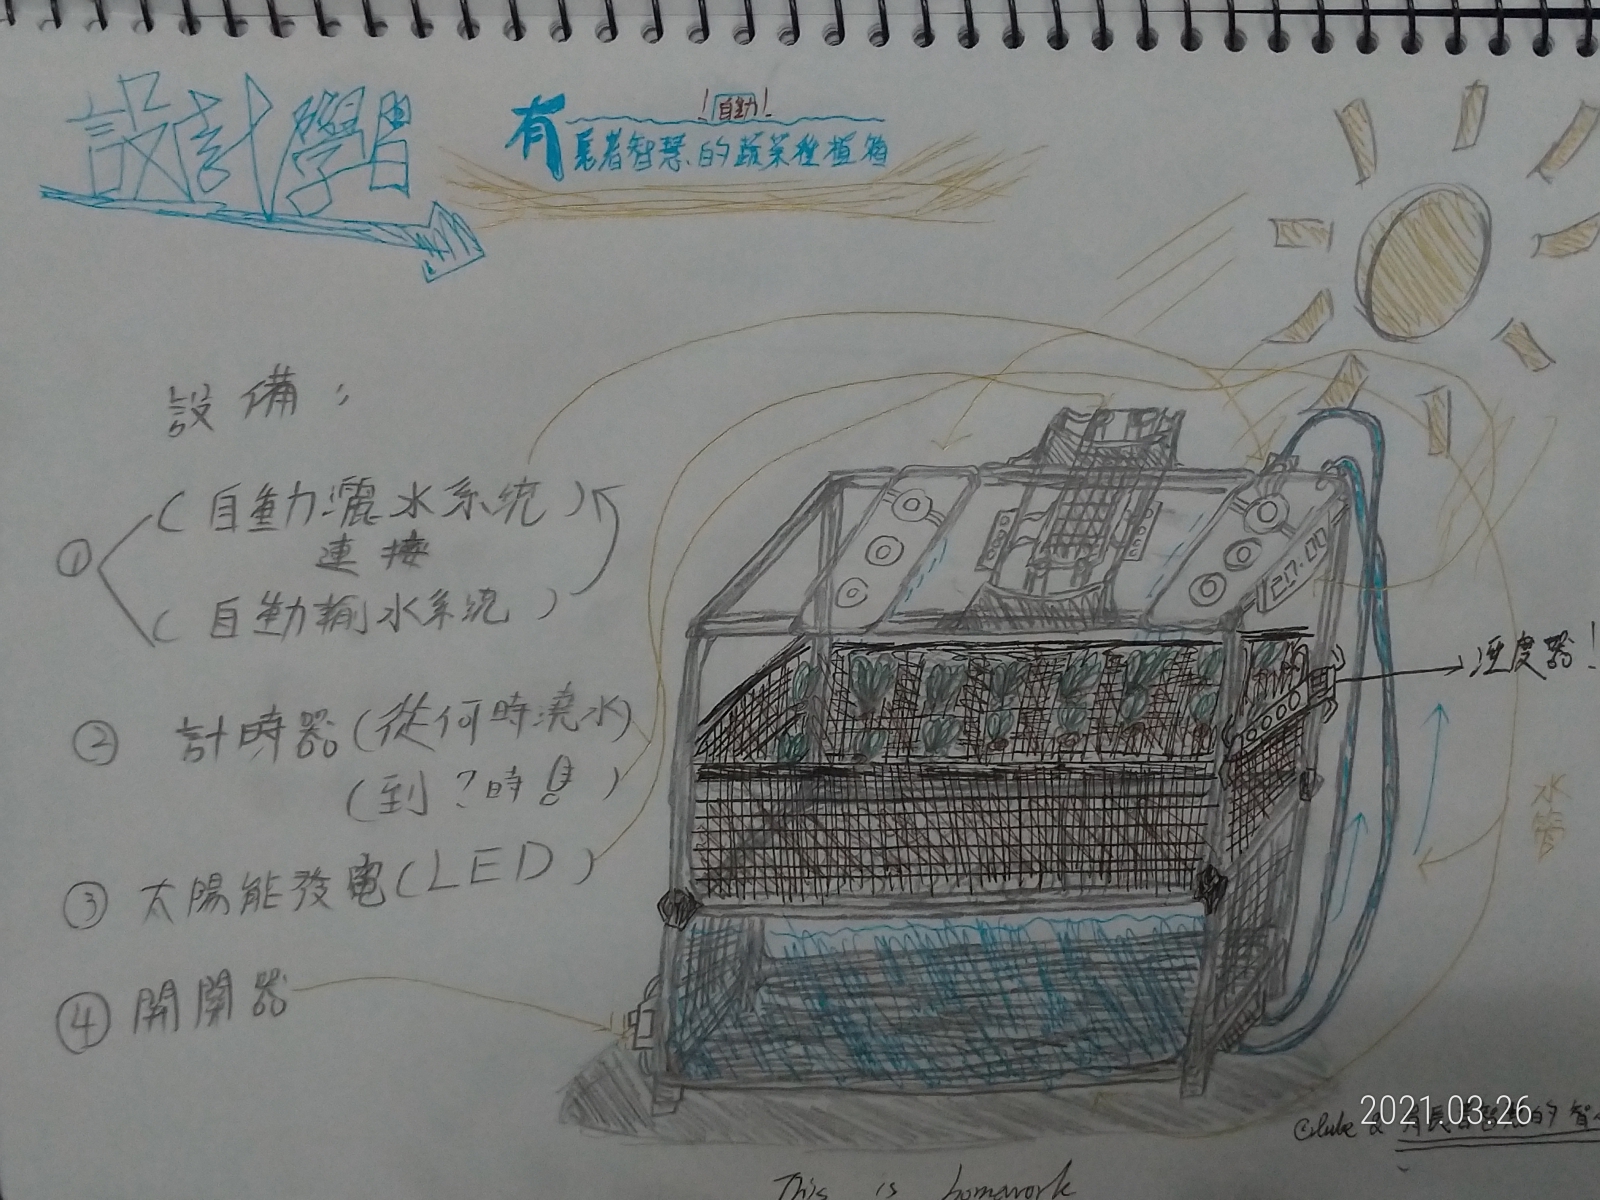 設計學習
!自動!
有長者智慧的蔬菜種植箱
設備:
① (自動灑水系統)
連接
(自動輸水系統)
② 計時器(從何時澆水)
(到?時
③ 太陽能發電(LED)
④ 開關器
20:00
溼度器!
水管
2021.03.26
有長者智慧的智
This is homework